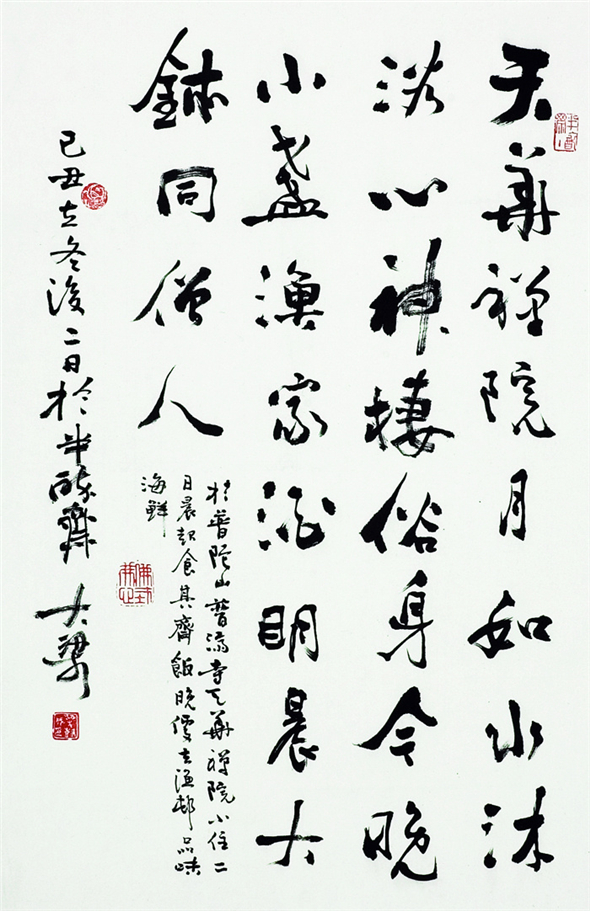 天華禪院月如水沐
浴心神棲俗身今晚
小盞漁家酒明晨大
鉢同僧人
於普陀山普濟寺天華禪院小住二
日晨起食其齋飯晚便去漁邨品味
海鮮
己丑立冬後二日於半醉齋 大梁